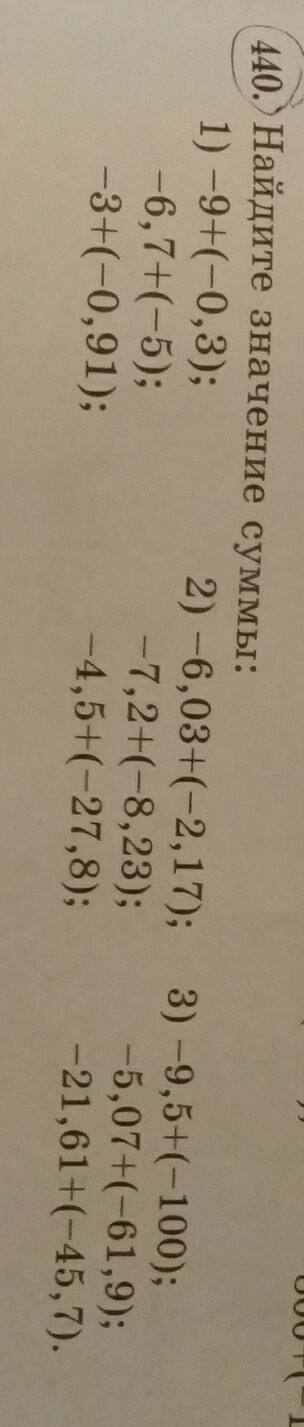 440. Найдите значение суммы:
1) −9+(−0,3);
−6,7+(−5);
−3+(−0,91);
2) −6,03+(−2,17);
−7,2+(−8,23);
−4,5+(−27,8);
3) −9,5+(−100);
−5,07+(−61,9);
−21,61+(−45,7).